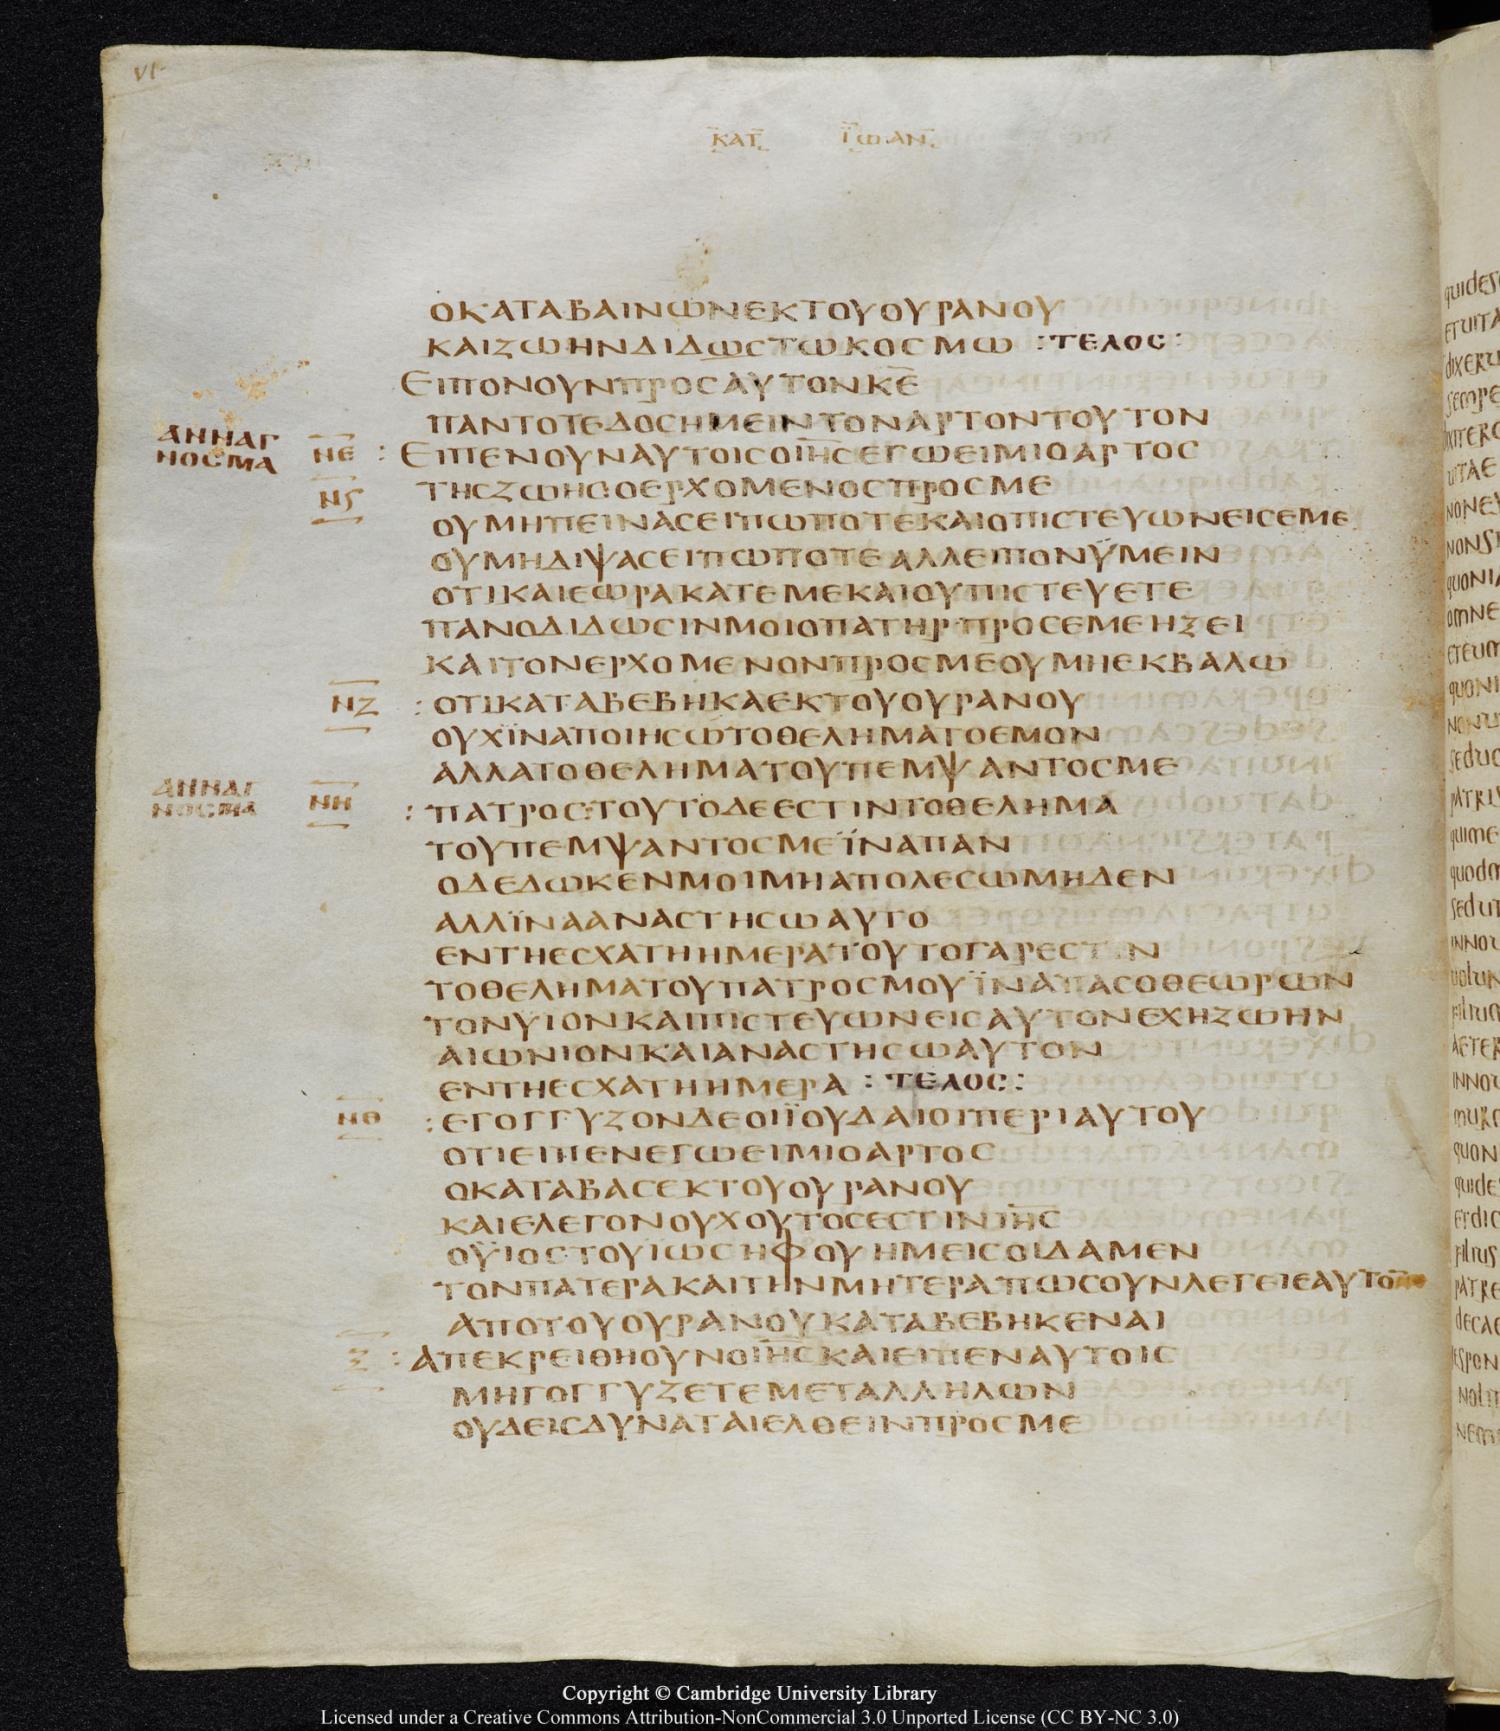 VI
ΚΑΤ ΙΩΑΝ
ΟΚΑΤΑΒΑΙΝΩΝΕΚΤΟΥΟΥΡΑΝΟΥ
ΚΑΙΖΩΗΝΔΙΔΩΣΤΩΚΟΣΜΩ :ΤΕΛΟΣ:
ΕΙΠΟΝΟΥΝΠΡΟΣΑΥΤΟΝΚΕ
ΠΑΝΤΟΤΕΔΟΣΗΜΕΙΝΤΟΝΑΡΤΟΝΤΟΥΤΟΝ
ΑΝΝΑΓ
ΝΟΣΜΑ
ΝΕ : ΕΙΠΕΝΟΥΝΑΥΤΟΙΣΟΙΗΣΕΓΩΕΙΜΙΟΑΡΤΟΣ
ΝϚ ΤΗΣΖΩΗΣΟΕΡΧΟΜΕΝΟΣΠΡΟΣΜΕ
ΟΥΜΗΠΕΙΝΑΣΕΙΠΩΠΟΤΕΚΑΙΟΠΙΣΤΕΥΩΝΕΙΣΕΜΕ
ΟΥΜΗΔΙΨΑΣΕΙΠΩΠΟΤΕΑΛΛΕΙΠΟΝΫΜΕΙΝ
ΟΤΙΚΑΙΕΩΡΑΚΑΤΕΜΕΚΑΙΟΥΠΙΣΤΕΥΕΤΕ
ΠΑΝΟΔΙΔΩΣΙΝΜΟΙΟΠΑΤΗΡ·ΠΡΟΣΕΜΕΗΞΕΙ
ΚΑΙΤΟΝΕΡΧΟΜΕΝΟΝΠΡΟΣΜΕΟΥΜΗΕΚΒΑΛΩ
ΝΖ : ΟΤΙΚΑΤΑΒΕΒΗΚΑΕΚΤΟΥΟΥΡΑΝΟΥ
ΟΥΧΪΝΑΠΟΙΗΣΩΤΟΘΕΛΗΜΑΤΟΕΜΟΝ
ΑΛΛΑΤΟΘΕΛΗΜΑΤΟΥΠΕΜΨΑΝΤΟΣΜΕ
ΑΝΝΑΓ
ΝΟΣΜΑ
ΝΗ : ΠΑΤΡΟΣ:ΤΟΥΤΟΔΕΕΣΤΙΝΤΟΘΕΛΗΜΑ
ΤΟΥΠΕΜΨΑΝΤΟΣΜΕΪΝΑΠΑΝ
ΟΔΕΔΩΚΕΝΜΟΙΜΗΑΠΟΛΕΣΩΜΗΔΕΝ
ΑΛΛΪΝΑΑΝΑΣΤΗΣΩΑΥΤΟ
ΕΝΤΗΕΣΧΑΤΗΗΜΕΡΑΤΟΥΤΟΓΑΡΕΣΤΙΝ
ΤΟΘΕΛΗΜΑΤΟΥΠΑΤΡΟΣΜΟΥΪΝΑΠΑΣΟΘΕΩΡΩΝ
ΤΟΝΥΙΟΝΚΑΙΠΙΣΤΕΥΩΝΕΙΣΑΥΤΟΝΕΧΗΖΩΗΝ
ΑΙΩΝΙΟΝΚΑΙΑΝΑΣΤΗΣΩΑΥΤΟΝ
ΕΝΤΗΕΣΧΑΤΗΗΜΕΡΑ :ΤΕΛΟΣ:
ΝΘ : ΕΓΟΓΓΥΖΟΝΔΕΟΙΪΟΥΔΑΙΟΙΠΕΡΙΑΥΤΟΥ
ΟΤΙΕΙΠΕΝΕΓΩΕΙΜΙΟΑΡΤΟΣ
ΟΚΑΤΑΒΑΣΕΚΤΟΥΟΥΡΑΝΟΥ
ΚΑΙΕΛΕΓΟΝΟΥΧΟΥΤΟΣΕΣΤΙΝΙΗΣ
ΟΫΙΟΣΤΟΥΙΩΣΗΦΟΥΗΜΕΙΣΟΙΔΑΜΕΝ
ΤΟΝΠΑΤΕΡΑΚΑΙΤΗΝΜΗΤΕΡΑΠΩΣΟΥΝΛΕΓΕΙΕΑΥΤΟΝ
ΑΠΟΤΟΥΟΥΡΑΝΟΥΚΑΤΑΒΕΒΗΚΕΝΑΙ
Ξ : ΑΠΕΚΡΕΙΘΗΟΥΝΟΙΗΣΚΑΙΕΙΠΕΝΑΥΤΟΙΣ
ΜΗΓΟΓΓΥΖΕΤΕΜΕΤΑΛΛΗΛΩΝ
ΟΥΔΕΙΣΔΥΝΑΤΑΙΕΛΘΕΙΝΠΡΟΣΜΕ
Copyright © Cambridge University Library
Licensed under a Creative Commons Attribution-NonCommercial 3.0 Unported License (CC BY-NC 3.0)